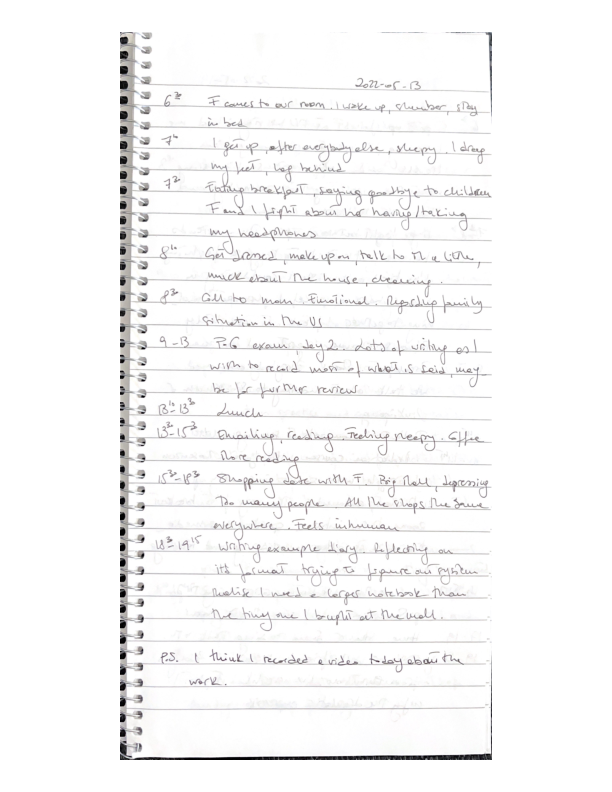 2022-05-13
6³⁰ F comes to our room. I wake up, slumber, stay
in bed
7⁰⁰ I get up, after everybody else, sleepy. I drag
my feet, lag behind
7³⁰ Eating breakfast, saying goodbye to children
F and I fight about her having/taking
my headphones
8⁰⁰ Get dressed, make up on, talk to M a little,
muck about the house, cleaning.
8³⁰ Call to mom. Emotional. Regarding family
situation in the US
9-13 exam, day 2. Lots of writing as I
wish to record most of what is said, may
be for further review
13¹⁰-13³⁰ Lunch
13³⁰-15³⁰ Emailing, reading. Feeling sleepy. Coffee
More reading
15³⁰-18³⁰ Shopping date with F. Big Mall, depressing
Too many people. All the shops the same
everywhere. Feels inhuman
18³⁰-19¹⁵ Writing example diary. Reflecting on
its format, trying to figure out system
realise I need a larger notebook than
the tiny one I bought at the mall.
P.S. I think I recorded a video today about the
work.